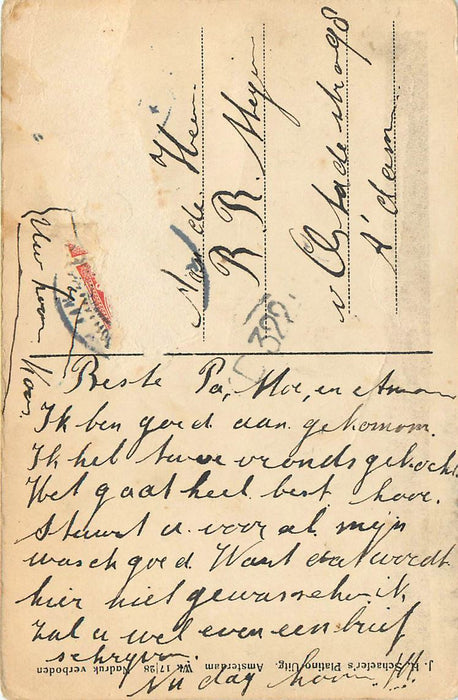 Aan de Heer
R R Meijer
v Ostadestr 98
A'dam
5399.
Beste Pa, Moe, en
Ik ben goed aan gekomom.
Ik heb twee vronds gekocht
Het gaat heel best hoor.
Stuurt u vooral mijn
waschgoed. Want dat wordt
hier niet gewasschen ik
zal u wel even een brief
schryven.
Nu dag hoor !!!
Uw zoon
Koos.
J. H. Schaefer's Platino Uitg. Amsterdam Nadruk verboden Wk 17/28